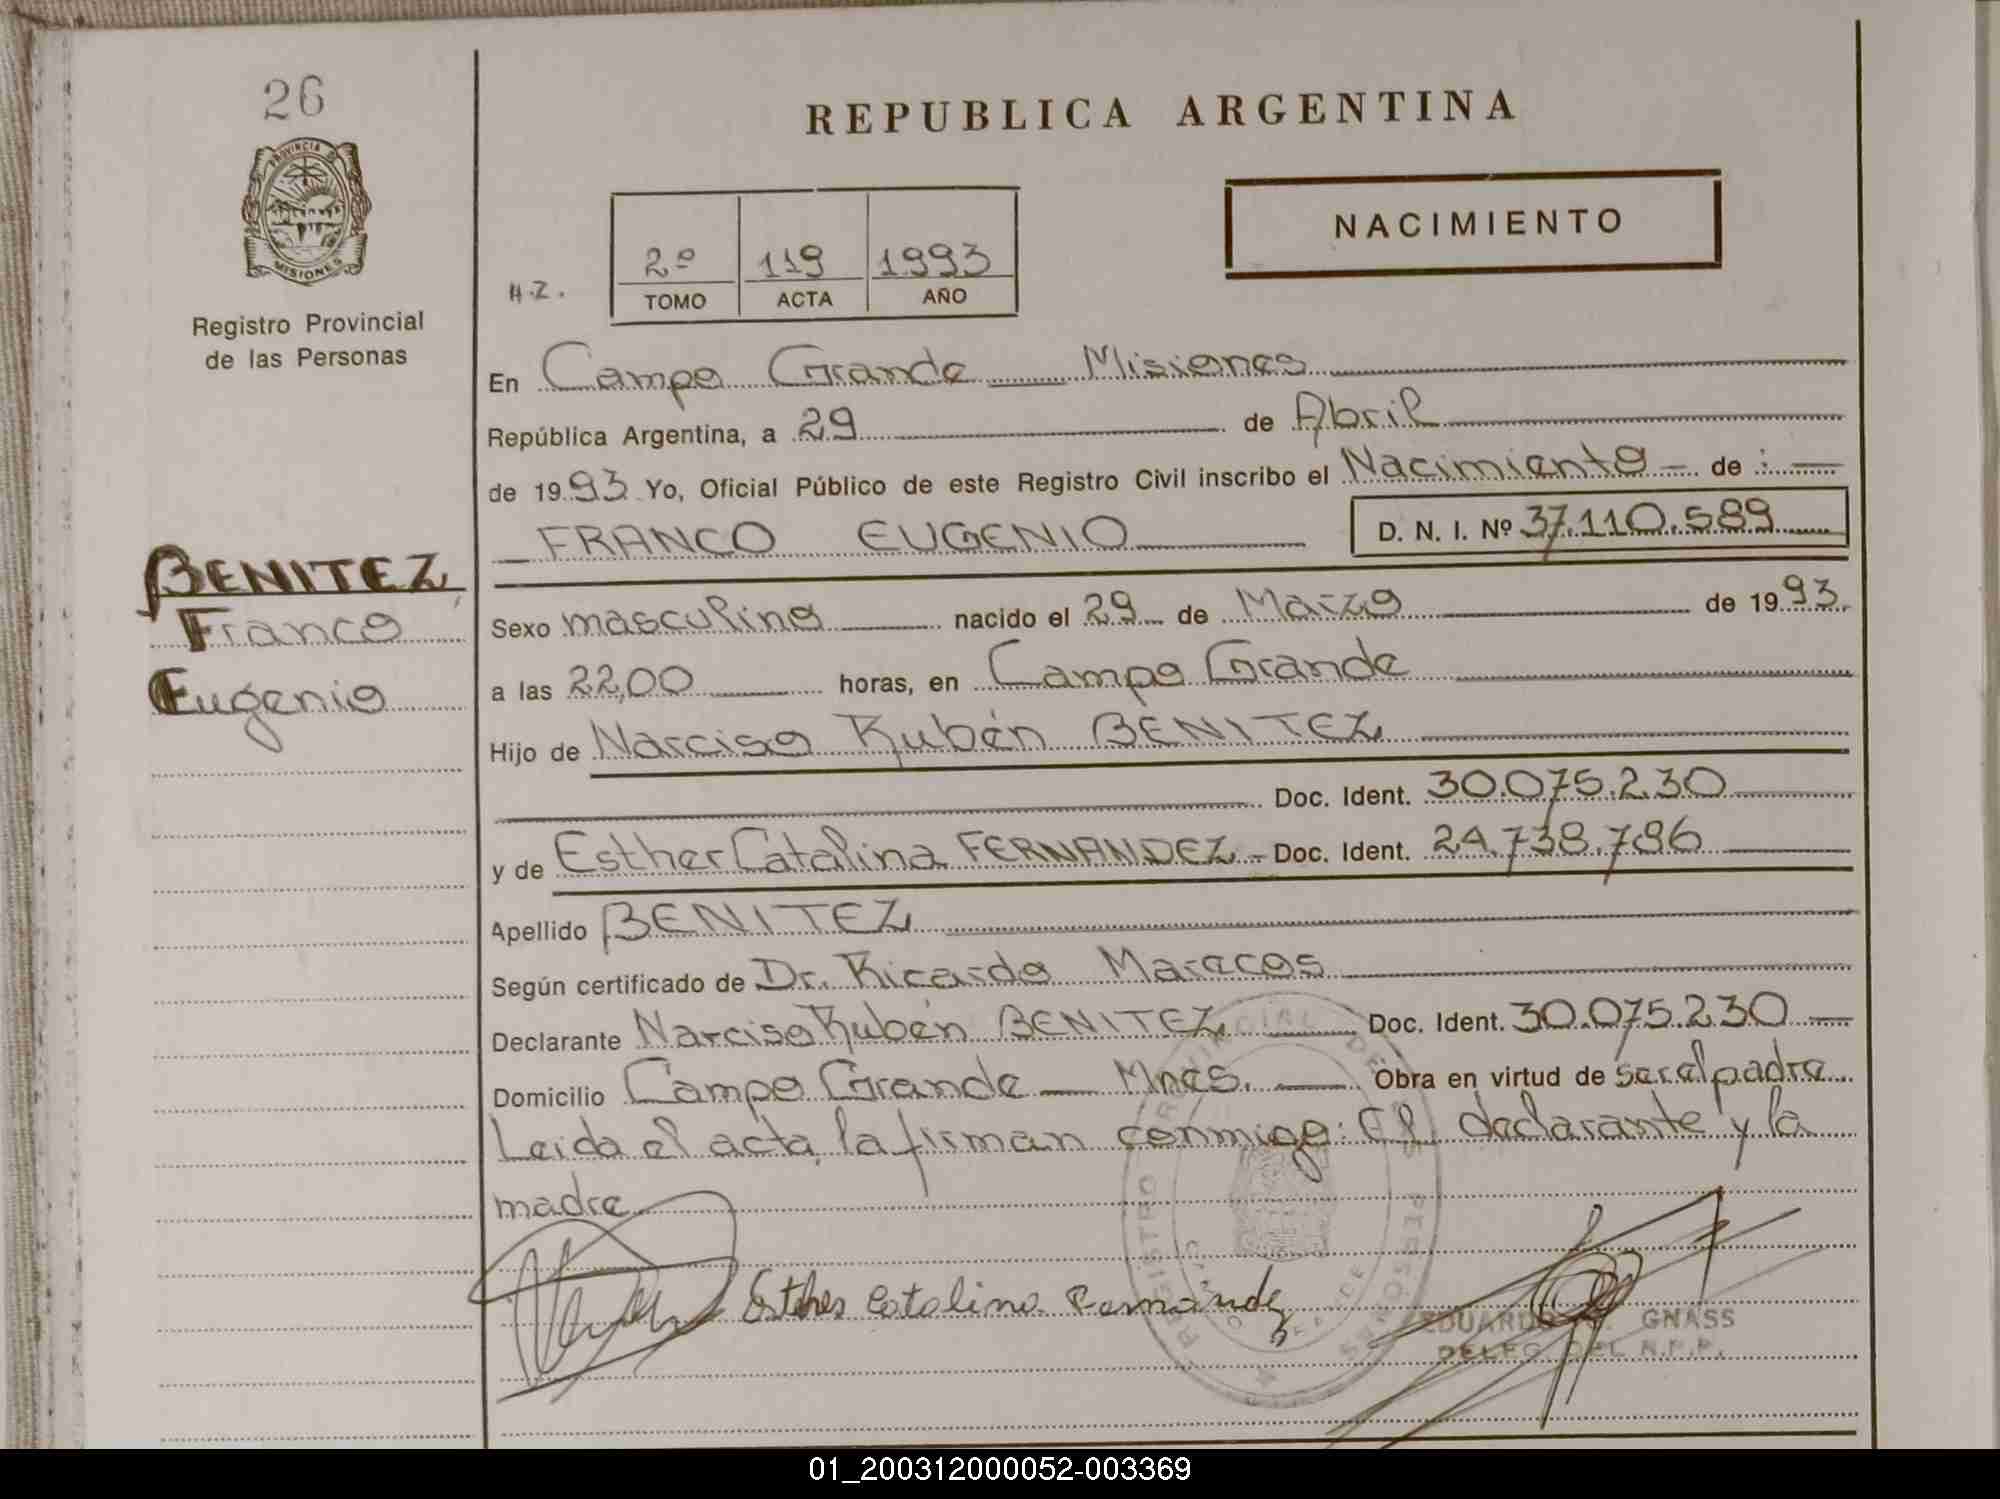 26
PROVINCIA DE
MISIONES
Registro Provincial
de las Personas
BENITEZ,
Franco
Eugenio
REPUBLICA ARGENTINA
NACIMIENTO
H.Z.
2º 119 1993
TOMO ACTA AÑO
En Campo Grande Misiones
República Argentina, a 29 de Abril
de 1993 Yo, Oficial Público de este Registro Civil inscribo el Nacimiento - de :
FRANCO EUGENIO D. N. I. Nº 37.110.589
Sexo masculino nacido el 29 de Marzo de 1993
a las 22,00 horas, en Campo Grande
Hijo de Narciso Rubén BENITEZ
Doc. Ident. 30.075.230
y de Esther Catalina FERNANDEZ - Doc. Ident. 24.738.786
Apellido BENITEZ
Según certificado de Dr. Ricardo
Declarante Narciso Rubén BENITEZ Doc. Ident. 30.075.230
Domicilio Campo Grande - Mnes. Obra en virtud de ser el padre
Leida el acta, la firman conmigo: El declarante y la
madre
Esther Catalina Fernández
REGISTRO PROVINCIAL DE PERSONAS
EDUARDO GNASS
DELEG. DEL R.P.P.
01_200312000052-003369